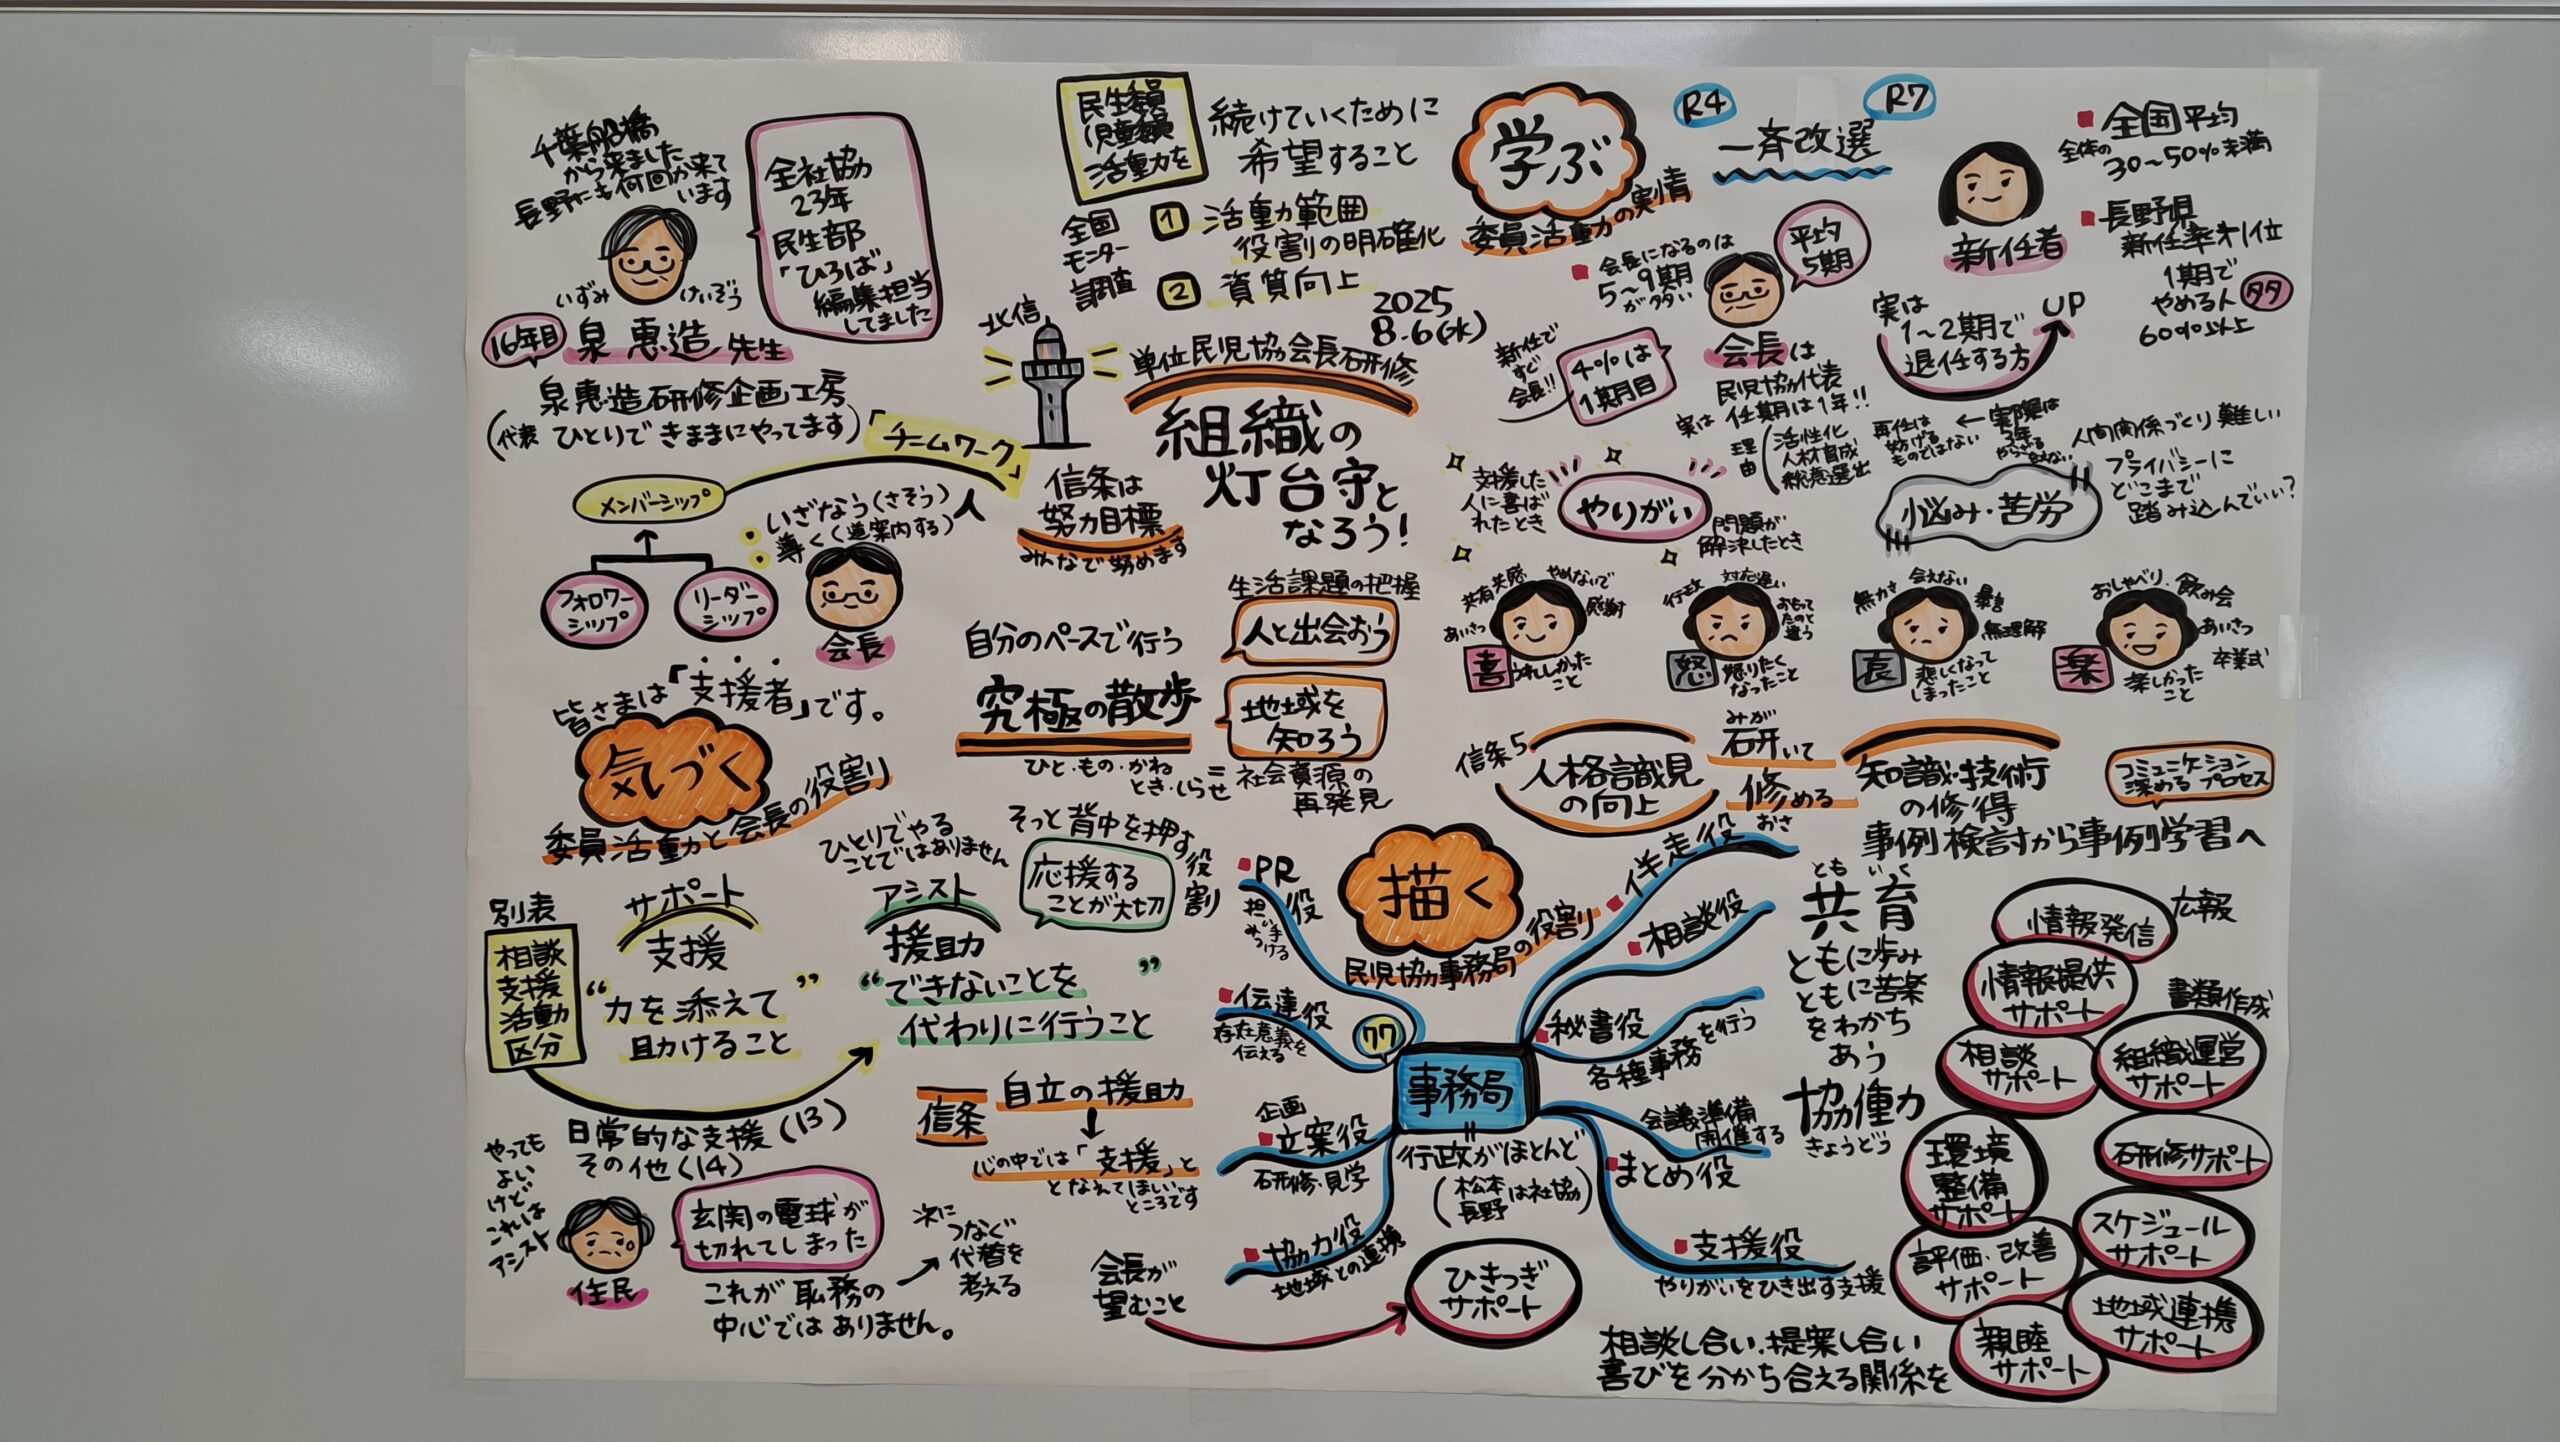 千葉船橋
から来ました
長野にも何回か来て
います
いずみ けいぞう
16年目
泉 惠造 先生
全社協
23年
民生部
「ひろば」
編集担当
してました
泉惠造研修企画工房
(代表 ひとりで きままにやってます)
「チームワーク」
メンバーシップ
フォロワー
シップ
リーダー
シップ
いざなう(さそう)人
導く(道案内する)
会長
皆さまは「支援者」です。
気づく
委員活動と会長の役割
民生委員
児童委員
活動を
続けていくために
希望すること
全国
モニター
調査
1 活動範囲
役割の明確化
2 資質向上
2025
8.6(水)
北信
単位民児協会長研修
組織の
灯台守と
なろう!
信条は
努力目標
みんなで努めます
自分のペースで行う
究極の散歩
生活課題の把握
人と出会おう
地域を
知ろう
ひと・もの・かね
とき・しらせ
=
社会資源の
再発見
学ぶ
委員活動の実情
R4
R7
一斉改選
会長になるのは
5〜9期
が多い
平均
5期
新任で
すぐ
会長!!
4%は
1期目
会長は
民児協代表
実は 任期は1年!!
理由
活性化
人材育成
総意選出
再任は
妨げる
ものではない
← 実際は
3年
新任者
全国平均
全体の
30〜50%未満
長野県
新任率オ1位
1期で
やめる人 多
60%以上
実は
1〜2期で
退任する方
UP
支援した
人に喜ば
れたとき
やりがい
問題が
解決したとき
悩み・苦労
人間関係づくり難しい
プライバシーに
どこまで
踏み込んでいい?
共有共感
やめないで
感謝
あいさつ
喜 うれしかった
こと
行政
対応遅い
おもって
たのと
違う
怒 怒りたく
なったこと
無力さ
会えない
暴言
無理解
哀 悲しくなって
しまったこと
おしゃべり・飲み会
あいさつ
卒業式
楽 楽しかった
こと
信条5
人格識見
の向上
みが
研いて
修める
おさ
知識・技術
の修得
コミュニケーション
深める プロセス
事例検討から事例学習へ
別表
相談
支援
活動
区分
サポート
支援
“力を添えて”
助けること
ひとりでやる
ことではありません
アシスト
援助
“できないことを”
代わりに行うこと
そっと背中を押す
役割
応援する
ことが大切
日常的な支援(13)
その他(14)
信条
自立の援助
心の中では「支援」と
となえてほしい
ところです
やっても
よい
けど
これは
アシスト
住民
玄関の電球が
切れてしまった
これが職務の
中心ではありません。
次に
つなぐ
代替を
考える
描く
民児協事務局の役割
PR
役
担い手
みつける
伝達役
存在意義を
伝える
77
事務局
=
行政がほとんど
(松本
長野 は社協)
企画
立案役
研修・見学
協力役
地域との連携
伴走役
相談役
秘書役
各種事務を行う
会議準備
開催する
まとめ役
支援役
やりがいをひき出す支援
会長が
望むこと
ひきつぎ
サポート
とも いく
共育
ともに歩み
ともに苦楽
をわかち
あう
協働力
きょうどう
情報発信
広報
情報提供
サポート
書類作成
相談
サポート
組織運営
サポート
環境
整備
サポート
研修サポート
スケジュール
サポート
評価・改善
サポート
地域連携
サポート
親睦
サポート
相談し合い、提案し合い
喜びを分かち合える関係を